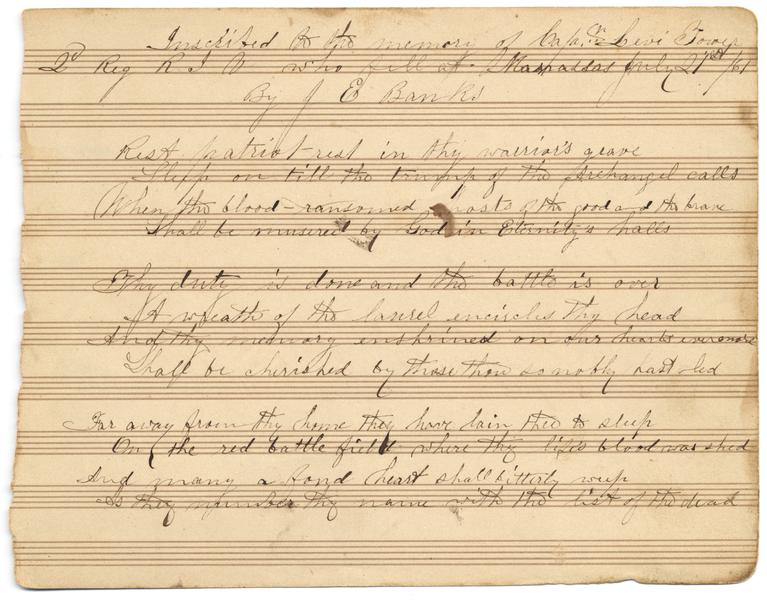 Inscribed to the memory of Capt. Levi Tower
2d Reg R I V who fell at Manassas July 21st/61
By J E Banks
Rest patriot rest in thy warrior's grave
Sleep on till the trump of the Archangel calls
When the blood-ransomed hosts of the good and the brave
Shall be musered by God in Eternity's halls
Thy duty is done and the battle is over
A wreath of the laurel encircles thy head
And thy memory enshrined on our hearts evermore
Shall be cherished by those thou so nobly hast led
Far away from thy home they have lain thee to sleep
On the red battle field where thy life's blood was shed
And many a fond heart shall bitterly weep
As they number thy name with the list of the dead